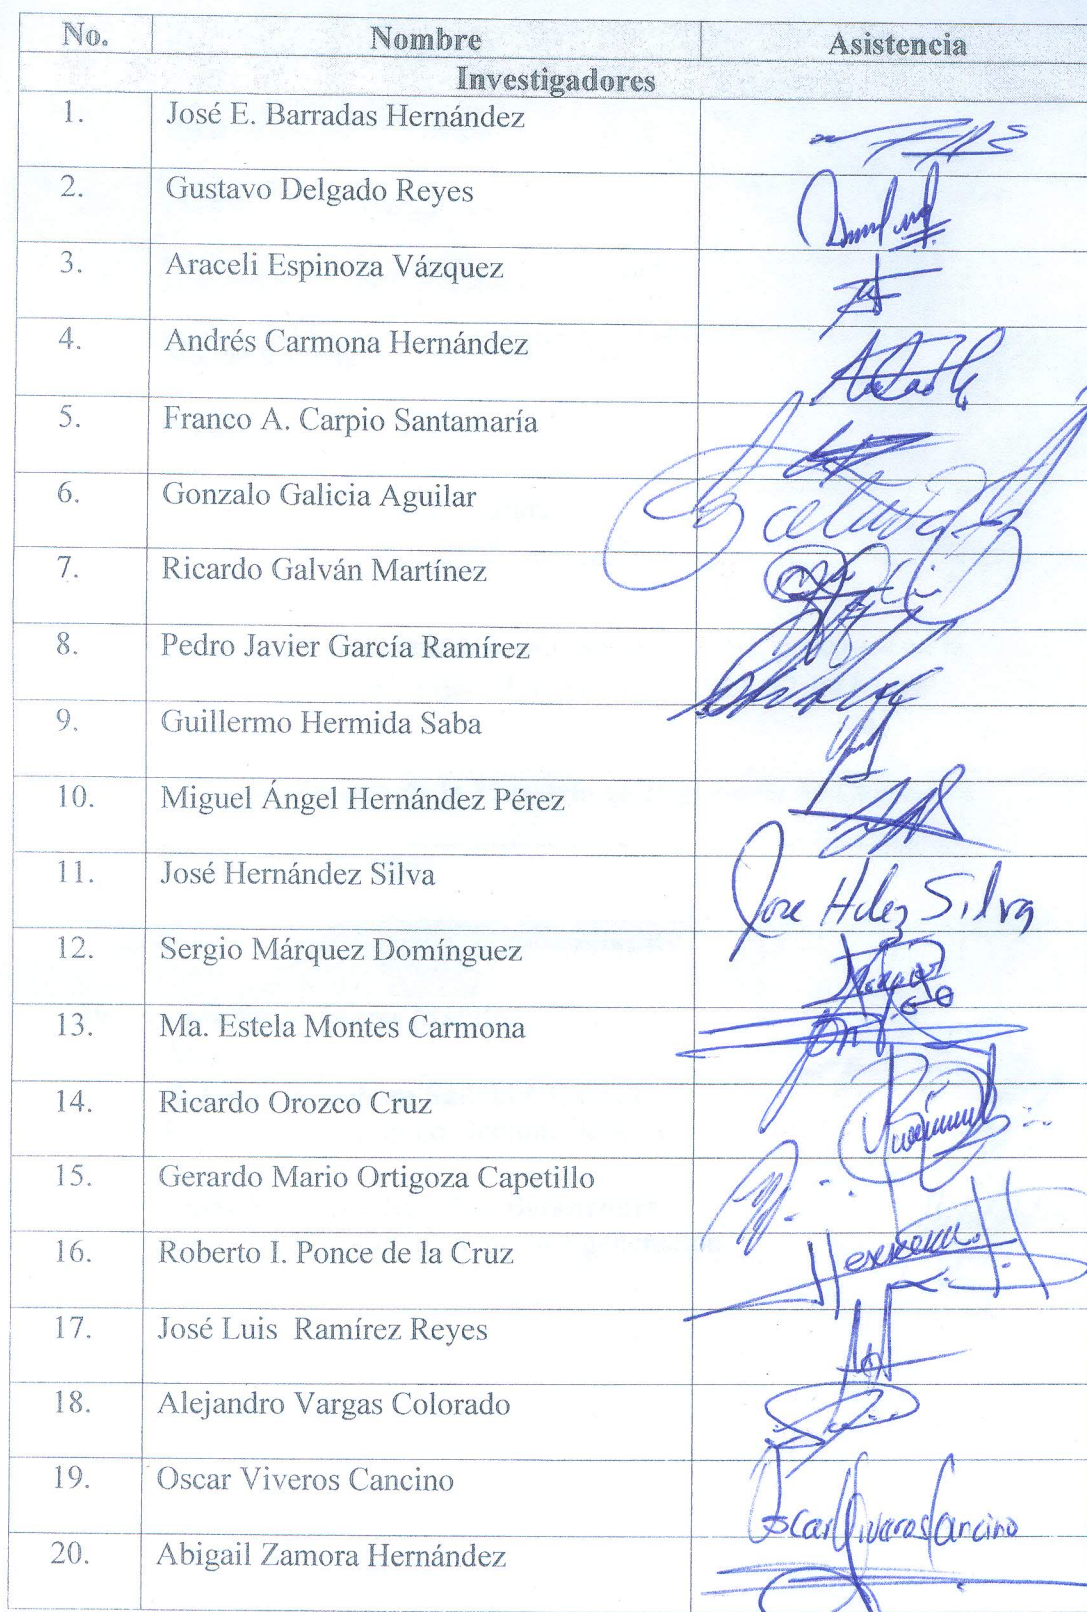 No. Nombre Asistencia
Investigadores
1. José E. Barradas Hernández
2. Gustavo Delgado Reyes
3. Araceli Espinoza Vázquez
4. Andrés Carmona Hernández
5. Franco A. Carpio Santamaría
6. Gonzalo Galicia Aguilar
7. Ricardo Galván Martínez
8. Pedro Javier García Ramírez
9. Guillermo Hermida Saba
10. Miguel Ángel Hernández Pérez
11. José Hernández Silva Jose Hdez Silva
12. Sergio Márquez Domínguez
13. Ma. Estela Montes Carmona
14. Ricardo Orozco Cruz
15. Gerardo Mario Ortigoza Capetillo
16. Roberto I. Ponce de la Cruz
17. José Luis Ramírez Reyes
18. Alejandro Vargas Colorado
19. Oscar Viveros Cancino Oscar Viveros Cancino
20. Abigail Zamora Hernández